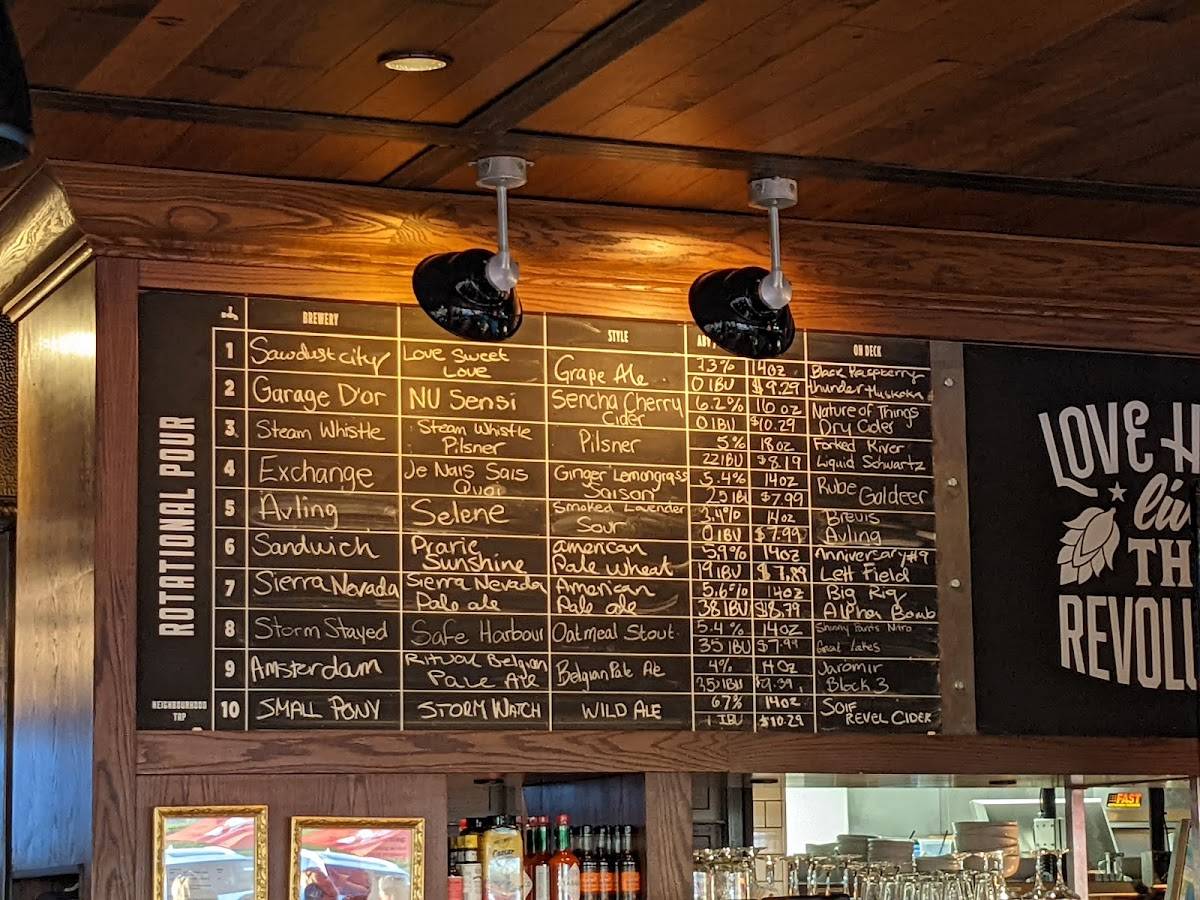 BREWERY
STYLE
ON DECK
ROTATIONAL POUR
NEIGHBOURHOOD
TAP
1 Sawdust city Love Sweet Love Grape Ale 7.3% 14oz Black Raspberry
0 IBU $9.29 thunder Muskoka
2 Garage D'or NU Sensi Sencha Cherry Cider 6.2% 16 oz Nature of Things
0 IBU $10.29 Dry Cider
3 Steam Whistle Steam Whistle Pilsner Pilsner 5% 18oz Forked River
22 IBU $8.19 Liquid Schwartz
4 Exchange Je Nais Sais Quoi Ginger Lemongrass Saison 5.4% 14oz Rube Goldeer
25 IBU $7.99
5 Avling Selene Smoked Lavender Sour 3.4% 14oz Brevis
0 IBU $7.99 Avling
6 Sandwich Prarie Sunshine american Pale wheat 5.9% 14oz Anniversary #9
19 IBU $7.89 Left Field
7 Sierra Nevada Sierra Nevada Pale ale American Pale ale 5.6% 14oz Big Rig
38 IBU $8.79 Alpha Bomb
8 Storm Stayed Safe Harbour Oatmeal Stout 5.4% 14oz Nitro
35 IBU $7.99 Great Lakes
9 Amsterdam Ritual Belgian Pale Ale Belgian Pale Ale 4% 14oz Jaromir
25 IBU $9.39 Block 3
10 SMALL PONY STORM WATCH WILD ALE 67% 14oz SOIF
1 IBU $10.29 REVEL CIDER
LOVE
THE
REVOLU
FAST